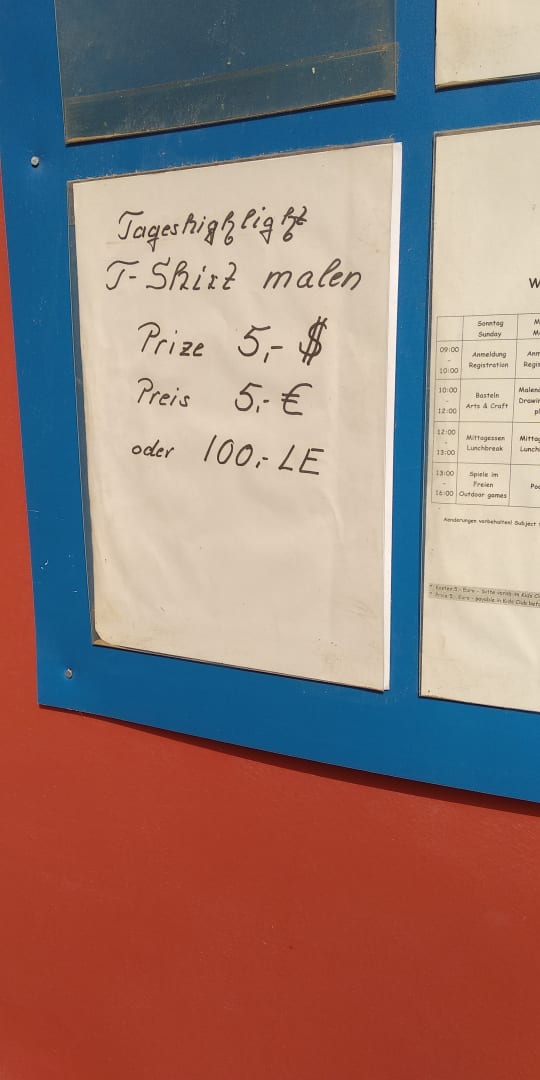 Tageshighlight
T-Shirt malen
Prize 5,- $
Preis 5,- €
oder 100,- LE
W
Sonntag
Sunday
09:00
-
10:00
Anmeldung
Registration
10:00
-
12:00
Basteln
Arts & Craft
12:00
-
13:00
Mittagessen
Lunchbreak
13:00
-
16:00
Spiele im
Freien
Outdoor games
Aenderungen vorbehalten! Subject